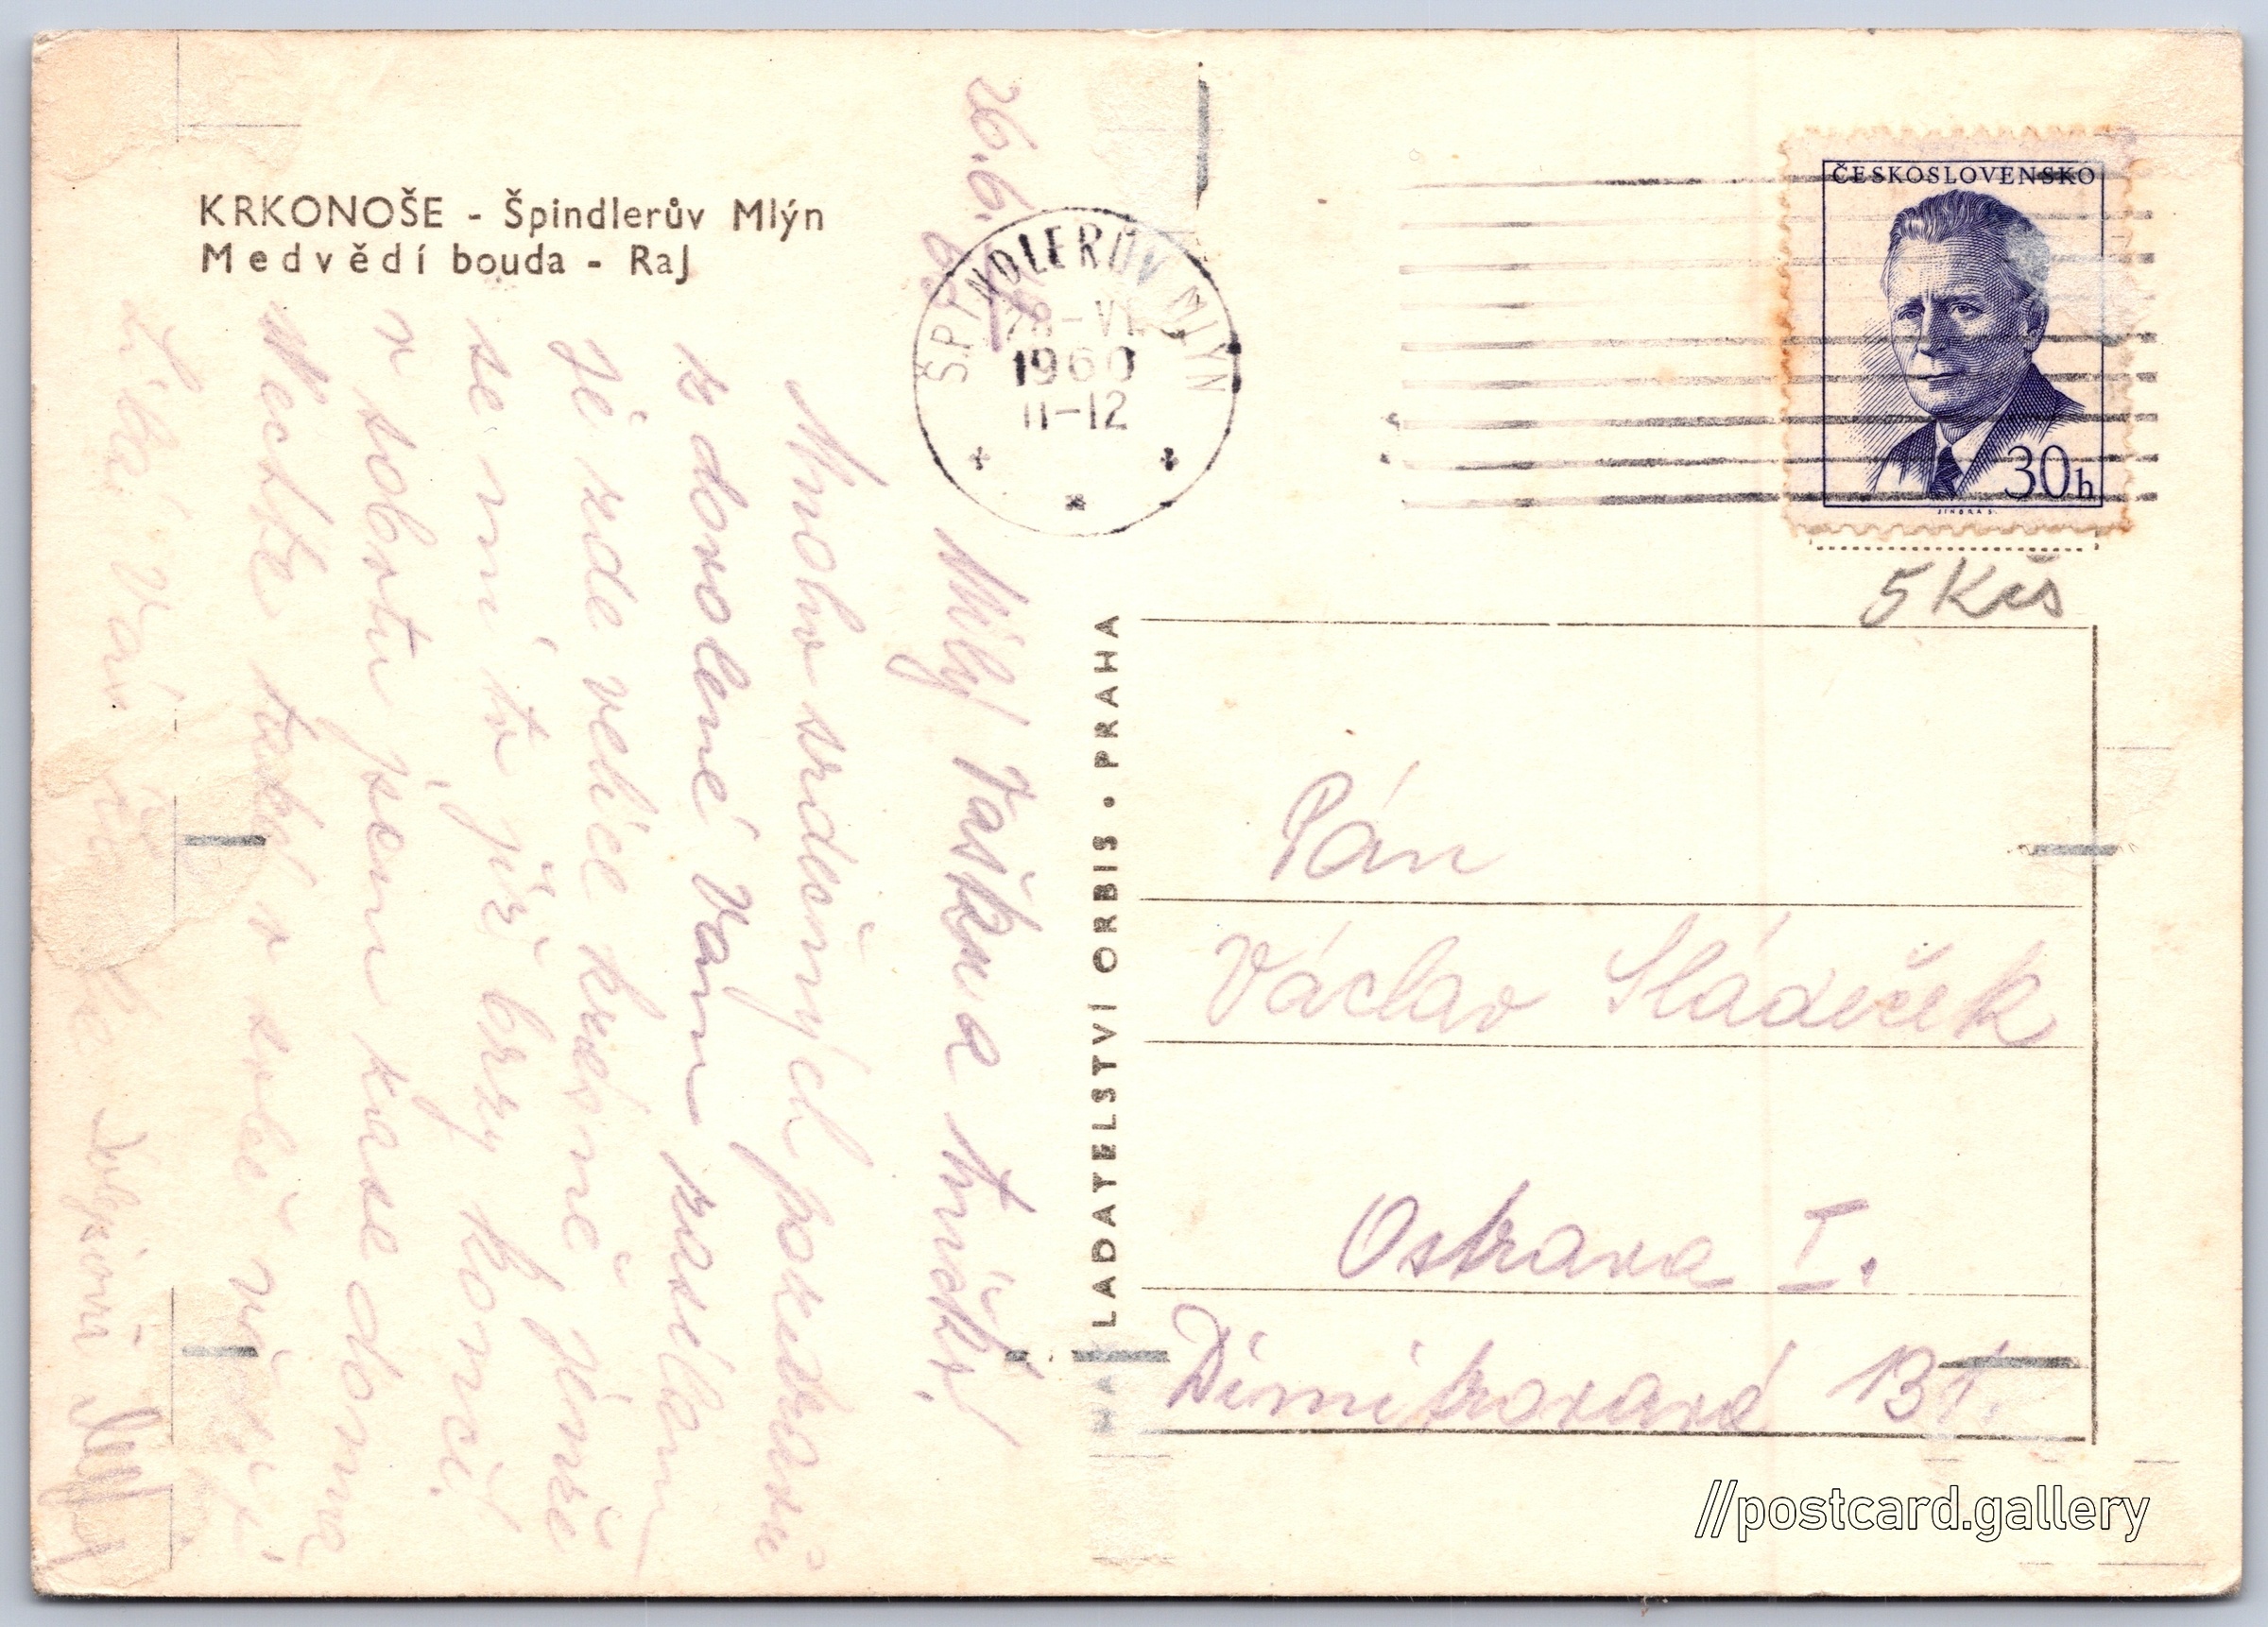 KRKONOŠE - Špindlerův Mlýn
Medvědí bouda - Raj
26.6.
Milý Vašku a Aničko!
Mnoho srdečných pozdravů
z dovolené Vám zasílám
Je zde velice krásně jenže
se mi to již brzy končí.
v sobotu jsem zase doma
Mějte také
Vás
ŠPINDLERŮV MLÝN
28-VI.
1960
11-12
ČESKOSLOVENSKO
30h
JINDRA S.
5 Kčs
LADATELSTVÍ ORBIS • PRAHA
Pán
Václav Sládeček
Ostrava I.
Dimitrovova 131.
//postcard.gallery